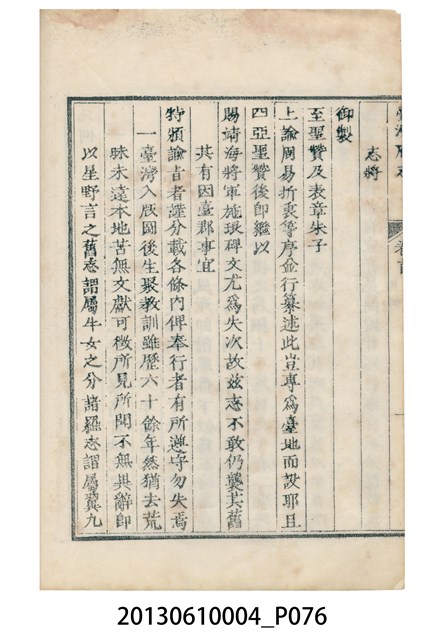 志將
御製
至聖贊及表章朱子
上諭周易折衷等序並行纂述此豈專爲臺地而設耶且
四亞聖贊後卽繼以
賜靖海將軍施琅碑文尤爲失次故玆志不敢仍襲其舊
其有因臺郡事宜
特頒諭旨者謹分載各條內俾奉行者有所遵守勿失焉
一臺灣入版圖後生聚教訓雖歷六十餘年然猶去荒
昧未遠本地苦無文獻可徵所見所聞不無異辭卽
以星野言之舊志謂屬牛女之分諸羅志謂屬翼九
20130610004_P076